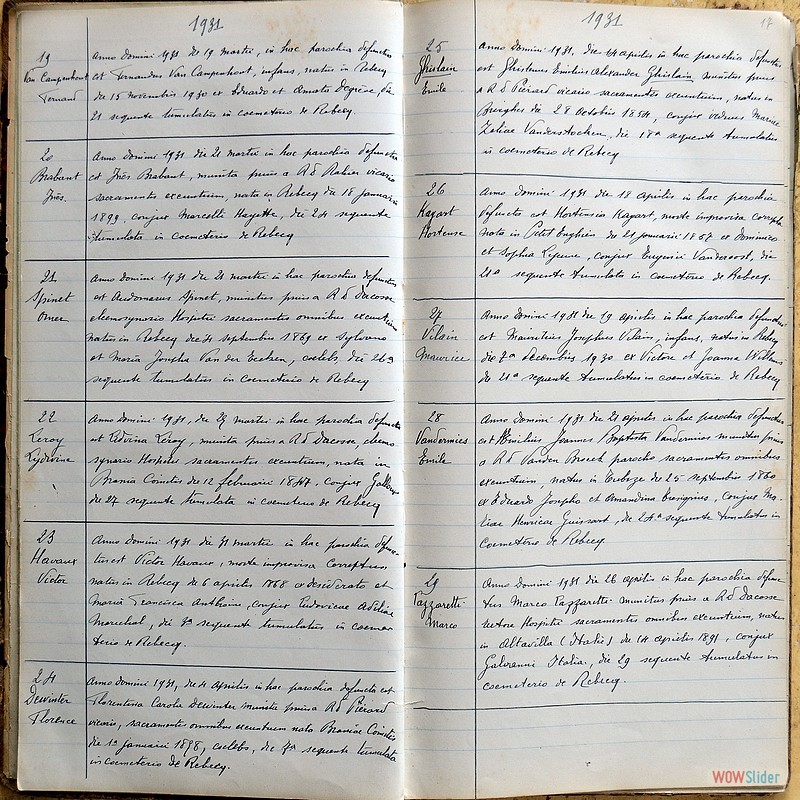 1931
19
Van Campenhout
Fernand
Anno Domini 1931 die 19 martii, in hac parochia defunctus
est Fernandus Van Campenhout, infans, natus in Rebecq
die 15 Novembris 1930 ex Eduardo et Amata Degrève, die
21 sequente tumulatus in coemeterio de Rebecq.
20
Brabant
Inès.
Anno Domini 1931 die 21 martii in hac parochia defuncta
est Inès Brabant, munita prius a Rd Rahier vicario
sacramentis exeuntium, nata in Rebecq die 18 januarii
1899. conjux Marcelli Hayette, die 24 sequente
tumulata in coemeterio de Rebecq
21
Spinet
Omer
Anno Domini 1931 die 21 martii in hac parochia defunctus
est Audomarus Spinet, munitus prius a Rd Dacosse
eleemosynario Hospitii sacramentis omnibus exeuntium
natus in Rebecq die 4 septembris 1869 ex Sylvano
et Maria Josepha Van der Eecken, coelebs die 26a
sequente tumulatus in coemeterio de Rebecq
22
Leroy
Lydwine
Anno Domini 1931, die 25 martii in hac parochia defuncta
est Ludvina Leroy, munita prius a Rd Dacosse, eleemo
synario Hospitii sacramentis exeuntium, nata in
Brania Comitis die 12 februarii 1847. conjux
die 27 sequente tumulata in coemeterio de Rebecq
23
Havaux
Victor
Anno Domini 1931 die 31 martii in hac parochia defunc
tus est Victor Havaux, morte improvisa correptus
natus in Rebecq die 6 aprilis 1868 ex Desiderato et
Maria Francisca Anthoine, conjux Ludovicae Adeliae
Marechal, die 3a sequente tumulatus in coeme
terio de Rebecq.
24
Dewinter
Florence
Anno Domini 1931, die 4 aprilis in hac parochia defuncta est
Florentina Carola Dewinter munita prius a Rd Pierard
vicario, sacramentis omnibus exeuntium nata Braniae Comitis
die 1a januarii 1898, coelebs, die 7a sequente tumulata
in coemeterio de Rebecq.
1931
17
25
Ghislain
Emile
Anno Domini 1931, die 14 aprilis in hac parochia defunctus
est Ghislenus Emilius Alexander Ghislain munitus prius
a Rd Pierard vicario sacramentis exeuntium, natus in
Bierghes die 28 octobris 1854, conjux viduus Mariae
Zoliae Vanderstocken, die 18a sequente tumulatus
in coemeterio de Rebecq
26
Kayart
Hortense
Anno Domini 1931 die 18 aprilis in hac parochia
defuncta est Hortensia Kayart, morte improvisa correpta
nata in Petit Enghien die 21 januarii 1867 ex Dominico
et Sophia Lejeune, conjux Eugenii Vandercost, die
21a sequente tumulata in coemeterio de Rebecq.
27
Vilain
Maurice
Anno Domini 1931 die 19 aprilis in hac parochia defunctus
est Mauritius Josephus Vilain, infans, natus in Rebecq
die 7a decembris 1930 ex Victore et Joanna Willems
die 21a sequente tumulatus in coemeterio de Rebecq
28
Vandermies
Emile
Anno Domini 1931 die 21 aprilis in hac parochia defunctus
est Emilius Joannes Baptista Vandermies munitus prius
a Rd Vanden Broeck parocho sacramentis omnibus
exeuntium, natus in Tubize die 25 septembris 1860
ex Eduardo Josepho et Amandina, conjux Ma
riae Henricae Guissart, die 24a sequente tumulatus in
Coemeterio de Rebecq.
29
Pazzaretti
Marco
Anno Domini 1931 die 26 aprilis in hac parochia defunc
tus Marco Pazzaretti munitus prius a Rd Dacosse
rectore Hospitii sacramentis omnibus exeuntium, natus
in Altavilla (Italie) die 14 aprilis 1891, conjux
Galvanni Italia, die 29 sequente tumulatus in
coemeterio de Rebecq.
WOWSlider